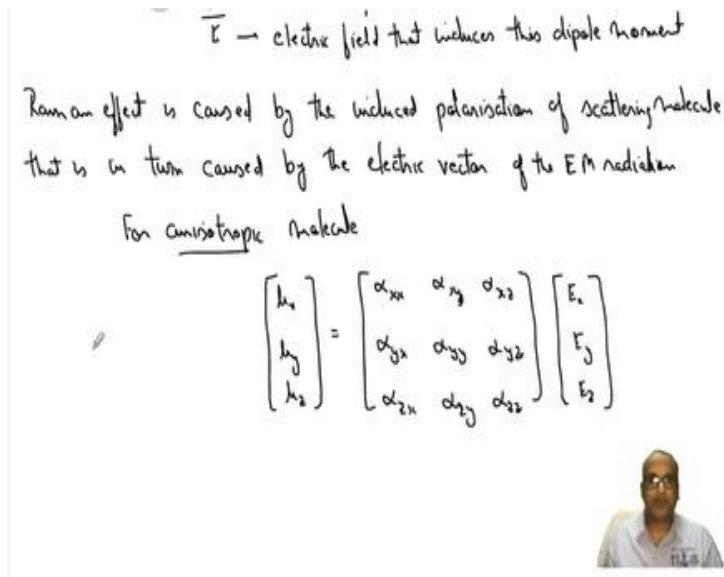 E̅ – electric field that induces this dipole moment
Raman effect is caused by the induced polarisation of scattering molecule
that is in turn caused by the electric vector of the EM radiation
For anisotropic molecule
[μx μy μz] = [αxx αxy αxz; αyx αyy αyz; αzx αzy αzz] [Ex Ey Ez]